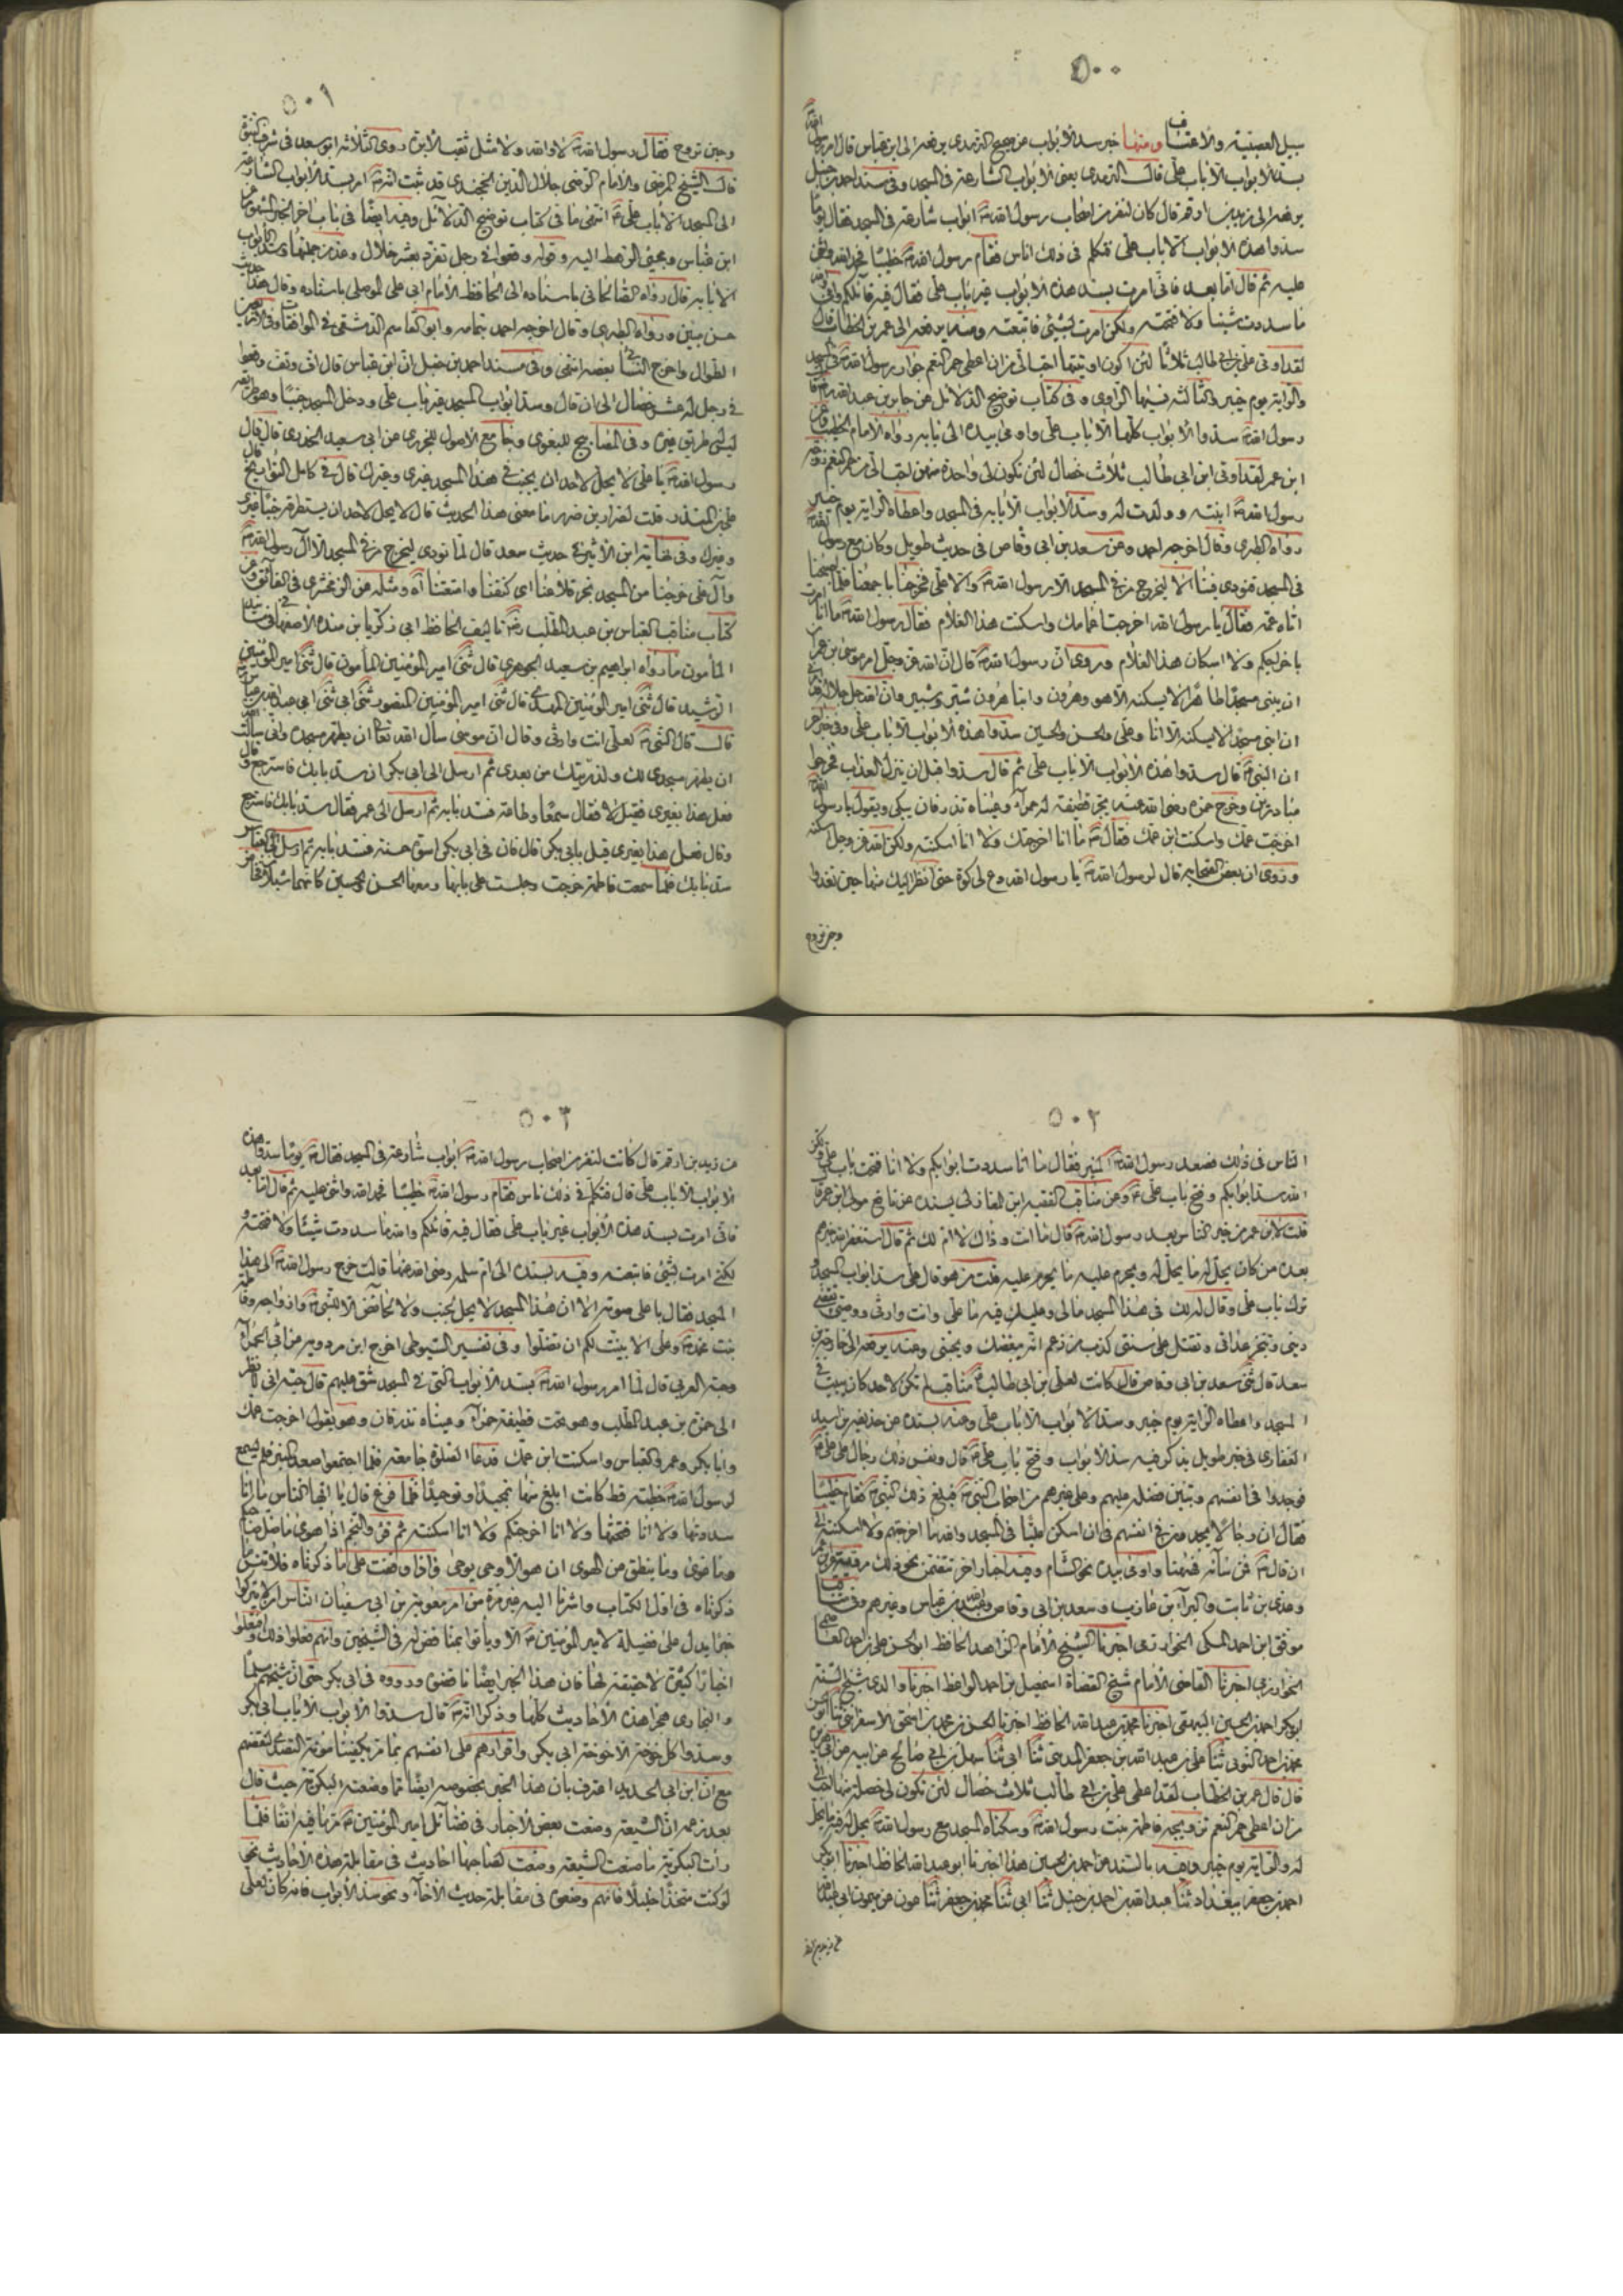 ٥٠٠
سبيل العصبيته والاعتساف ومنها خبر سد الابواب عن صحيح الترمدى بن هنه الى ابن عباس قال امر رسول الله
بسد الابواب الا باب على قال الترمدى يعنى الابواب الشارعة فى المسجد وفى مسند احمد بن حنبل
الى زيد بن ارقم قال كان لنفر من اصحاب رسول الله ابواب شارعة فى المسجد فقال يوما
سدوا هذه الابواب الا باب على فتكلم فى ذلك اناس فقام رسول الله خطيبا فحمد الله واثنى
عليه ثم قال اما بعد فانى امرت بسد هذه الابواب غير باب على فقال فيه قائلكم وانى والله
ما سددت شيئا ولا فتحته ولكن امرت بشيئ فاتبعته ومنه الى عمر بن الخطاب قال
لقد اوتى على بن ابى طالب ثلاثا لئن اكون اوتيتها احب الى من ان اعطى حمر النعم جوار رسول الله فى المسجد
والراية يوم خيبر والثالثه نسيها الراوى وفى كتاب توضيح الدلائل عن جابر بن عبد الله قال
رسول الله سدوا الابواب كلها الا باب على واومى بيده الى بابه رواه الامام الخطيب وعن
ابن عمر لقد اوتى ابن ابى طالب ثلاث خصال لئن تكون لى واحدة منهن احب الى من حمر النعم زوجه
رسول الله ابنته وولدت له وسد الابواب الا بابه فى المسجد واعطاه الراية يوم خيبر
رواه الطبرى وقال اخرجه احمد وعن سعد بن ابى وقاص فى حديث طويل وكان مع رسول الله
فى المسجد فنودى فينا الا ليخرج من فى المسجد الا رسول الله والا على فخرجنا باجمعنا فلما اصبحنا
اتاه عمه فقال يا رسول الله اخرجت اعمامك واسكنت هذا الغلام فقال رسول الله ما انا امرت
باخراجكم ولا اسكان هذا الغلام وروى ان رسول الله قال ان الله عز وجل امر موسى بن عمران
ان يبنى مسجدا طاهرا لا يسكنه الا هو وهرون وابنا هرون شبر وشبير وان الله جل جلاله امرنى
ان ابنى مسجدا لا يسكنه الا انا وعلى والحسن والحسين سدوا هذه الابواب الا باب على وفى خبر اخر
ان النبى قال سدوا هذه الابواب الا باب على ثم قال سدوا قبل ان ينزل العذاب فخرجوا
مبادرين وخرج حمزه رضى الله عنه يجر قطيفة له حمرآء وعيناه تذرفان يبكى ويقول يا رسول الله
اخرجت عمك واسكنت ابن عمك فقال ما انا اخرجتك ولا انا اسكنته ولكن الله عز وجل اسكنه
وروى ان بعض الصحابه قال لرسول الله يا رسول الله دع لى كوة حتى انظر اليك منها حين تغدوا
وحين تروح
٥٠١
وحين تروح فقال رسول الله لا والله ولا مثل ثقب الابرة روى الثلاثه ابو سعد فى شرف النبوة
قال الشيخ المرتضى والامام الرضى جلال الدين الخجندى قد ثبت انه امر بسد الابواب الشارعة
الى المسجد الا باب على انتهى ما فى كتاب توضيح الدلائل وفيه ايضا فى باب اخر
ابن عباس ومجيئ الرهط اليه وقوله وقعوا فى رجل تفرد بعشر خلال وعد من جملتها وسد الابواب
الا بابه قال رواه الصالحانى باسناده الى الحافظ الامام ابى على الموصلى باسناده وقال هذا حديث
حسن متين ورواه الطبرى وقال اخرجه احمد بتمامه وابو القاسم الدمشقى فى الموافقات وفى الاربعين
الطوال واخرج النسائى بعضه انتهى وفى مسند احمد بن حنبل ان ابن عباس قال اف وتف وقعوا
فى رجل له عشر خصال الى ان قال وسد ابواب المسجد غير باب على ودخل المسجد جنبا وهو طريقه
ليس له طريق غيره وفى المصابيح للبغوى وجامع الاصول للجزرى عن ابى سعيد الخدرى قال قال
رسول الله يا على لا يحل لاحد ان يجنب فى هذا المسجد غيرى وغيرك قال فى كامل التواريخ قال
على بن المنذر قلت لضرار بن ضرد ما معنى هذا الحديث قال لا يحل لاحد ان يستطرقه جنبا غيرى
وغيرك وفى نهاية ابن الاثير فى حديث سعد قال لما نودى ليخرج من فى المسجد الا آل رسول الله
وآل على خرجنا من المسجد نجر قلاعنا اى كنفنا وامتعتنا آه ومثله عن الزمخشرى فى الفائق وعن
كتاب مناقب العباس بن عبد المطلب تاليف الحافظ ابى زكريا بن منده الاصفهانى
المأمون ما رواه ابراهيم بن سعيد الجوهرى قال ثنى امير المؤمنين المأمون قال ثنى امير المؤمنين
الرشيد قال ثنى امير المؤمنين المهدى قال ثنى امير المؤمنين المنصور ثنى ابى ثنى ابى عبد الله بن عباس
قال قال النبى لعلى انت وارثى وقال ان موسى سأل الله تعالى ان يطهر مسجده وانى سألت الله
ان يطهر مسجدى لك ولذريتك من بعدى ثم ارسل الى ابى بكر ان سد بابك فاسترجع وقال
فعل هذا بغيرى فقيل لا فقال سمعا وطاعة فسد بابه ثم ارسل الى عمر فقال سد بابك فاسترجع
وقال فعل هذا بغيرى قيل بابى بكر قال فان فى ابى بكر اسوة حسنة فسد بابه ثم ارسل الى العباس
سد بابك فلما سمعت فاطمة خرجت وجلست على بابها ومعها الحسن والحسين كانهما شبلان
٥٠٢
الناس فى ذلك فصعد رسول الله المنبر فقال ما انا سددت ابوابكم ولا انا فتحت باب على ولكن
الله سد ابوابكم وفتح باب على وعن مناقب الفقيه ابن المغازلى بسنده عن نافع مولى ابن عمر قال
قلت لابن عمر من خير الناس بعد رسول الله قال ما انت وذاك لا ام لك ثم قال استغفر الله خيرهم
بعده من كان يحل له ما يحل له ويحرم عليه ما يحرم عليه قلت من هو قال على سد ابواب المسجد و
ترك باب على وقال له لك فى هذا المسجد مالى وعليك فيه ما على وانت وارثى ووصيى تقضى
دينى وتنجز عداتى وتقتل على سنتى كذب من زعم انه يبغضك ويحبنى وعنه
سعد قال ثنى سعد بن ابى وقاص قال كانت لعلى بن ابى طالب مناقب لم تكن لاحد كان يبيت فى
المسجد واعطاه الراية يوم خيبر وسد الابواب الا باب على وعنه بسنده عن حذيفه بن اسيد
الغفارى فى خبر طويل يذكر فيه سد الابواب وفتح باب على قال ونفس ذلك رجال على على
فوجدوا فى انفسهم وتبين فضله عليهم وعلى غيرهم من اصحاب النبى فبلغ ذلك النبى فقام خطيبا
فقال ان رجالا يجدون فى انفسهم فى ان اسكن عليا فى المسجد والله ما اخرجتهم ولا اسكنته الى
ان قال فمن ساءه فههنا واومى بيده نحو الشام وفيه اخبار اخر تتضمن نحو ذلك مرفوعة عن
وعدى بن ثابت والبرآء بن عازب وسعد بن ابى وقاص وعبد الله بن عباس وغيرهم وفى مناقب
موفق ابن احمد المكى الخوارزمى اخبرنا الشيخ الامام الزاهد الحافظ ابو الحسن على بن احمد العاصمى
الخوارزمى اخبرنا القاضى الامام شيخ القضاة اسمعيل بن احمد الواعظ اخبرنا والدى شيخ السنة
ابو بكر احمد بن الحسين البيهقى اخبرنا محمد بن عبد الله الحافظ اخبرنا الحسن بن محمد بن اسحق الاسفراينى ثنا ابو الحسن
محمد بن احمد ثنا على بن عبد الله بن جعفر المدينى ثنا ابى ثنا سهل بن ابى صالح عن ابيه عن ابى هريرة
قال قال عمر بن الخطاب لقد اعطى على بن ابى طالب ثلاث خصال لئن تكون لى خصلة منها احب الى
من ان اعطى حمر النعم تزويجه فاطمة بنت رسول الله وسكناه المسجد مع رسول الله يحل له فيه ما يحل
له والراية يوم خيبر وفيه بالسند عن احمد بن الحسين هذا اخبرنا ابو عبد الله الحافظ اخبرنا ابو بكر
احمد بن جعفر ببغداد ثنا عبد الله بن احمد بن حنبل ثنا ابى ثنا محمد بن جعفر ثنا عون عن ميمون ابى عبد الله
عن زيد بن ارقم
٥٠٣
عن زيد بن ارقم قال كانت لنفر من اصحاب رسول الله ابواب شارعة فى المسجد فقال يوما سدوا هذه
الابواب الا باب على قال فتكلم فى ذلك ناس فقام رسول الله خطيبا فحمد الله واثنى عليه ثم قال اما بعد
فانى امرت بسد هذه الابواب غير باب على فقال فيه قائلكم والله ما سددت شيئا ولا فتحته و
لكنى امرت بشيئ فاتبعته وفيه بسنده الى ام سلمه رضى الله عنها قالت خرج رسول الله الى هذا
المسجد فقال باعلى صوته الا ان هذا المسجد لا يحل لجنب ولا لحائض الا للنبى وازواجه وفاطمة
بنت محمد وعلى الا بينت لكم ان تضلوا وفى تفسير السيوطى اخرج ابن مردويه عن ابى الحمرآء
وحبة العربى قال لما امر رسول الله بسد الابواب التى فى المسجد شق عليهم قال حبة انى لانظر
الى حمزة بن عبد المطلب وهو تحت قطيفة حمرآء وعيناه تذرفان وهو يقول اخرجت عمك
وابا بكر وعمر والعباس واسكنت ابن عمك فدعا الصلوة جامعة فلما اجتمعوا صعد المنبر فلم يسمع
لرسول الله خطبة قط كانت ابلغ منها تمجيدا وتوحيدا فلما فرغ قال يا ايها الناس ما انا
سددتها ولا انا فتحتها ولا انا اخرجتكم ولا انا اسكنته ثم قرء والنجم اذا هوى ما ضل صاحبكم
وما غوى وما ينطق عن الهوى ان هو الا وحى يوحى واذا وقفت على ما ذكرناه فلا تنس ما
ذكرناه فى اول الكتاب واشرنا اليه غير مرة من امر معوية بن ابى سفيان الناس ان لا يتركوا
خبرا يدل على فضيلة لامير المؤمنين الا ويأتوا بمناقض له فى الشيخين وانهم فعلوا ذلك وافتعلوا
اخبارا كثيرة لا حقيقة لها فان هذا الخبر ايضا ناقضوه ورووه فى ابى بكر حتى ان شيخهم مسلما
والبخارى هجرا هذه الاحاديث كلها وذكرا انه قال سدوا الابواب الا باب ابى بكر
وسدوا كل خوخة الا خوخة ابى بكر واقرارهم على انفسهم مما مر يكفينا مؤنة التصدى لنقضهم
مع ان ابن ابى الحديد اعترف بان هذا الخبر بخصوصه ايضا مما وضعته البكرية حيث قال
بعد زعمه ان الشيعة وضعت بعض الاخبار فى فضائل امير المؤمنين فلما
رأت البكرية ما صنعت الشيعة وضعت لصاحبها احاديث فى مقابلة هذه الاحاديث نحو
لو كنت متخذا خليلا فانهم وضعوه فى مقابلة حديث الاخآء ونحو سد الابواب فانه كان لعلى